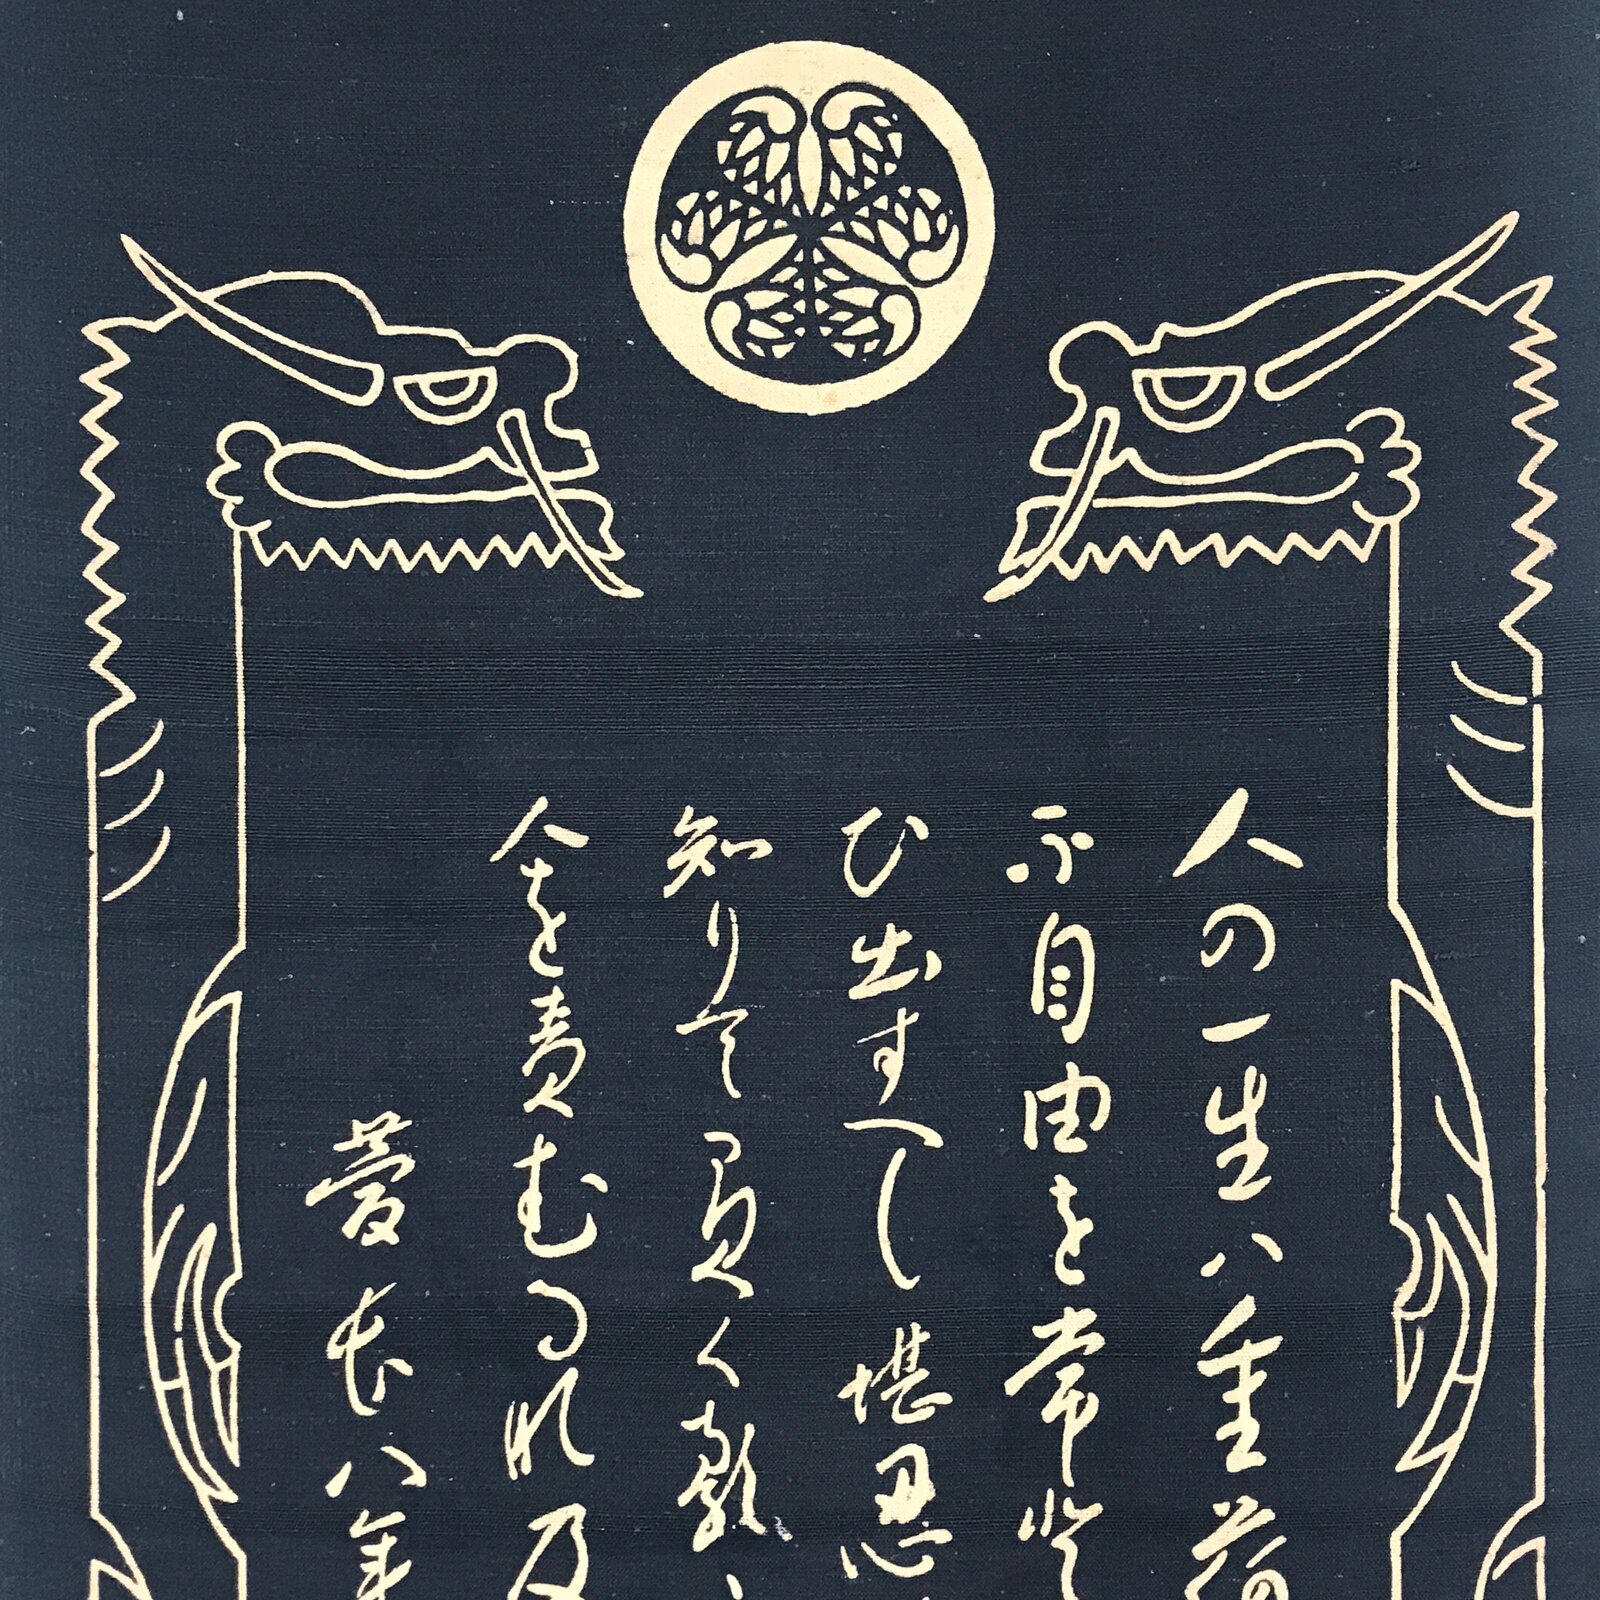 人の一生ハ重荷
不自由を常と
ひ出すへし堪忍
知りて負くる
人を責むるな及
慶長八年